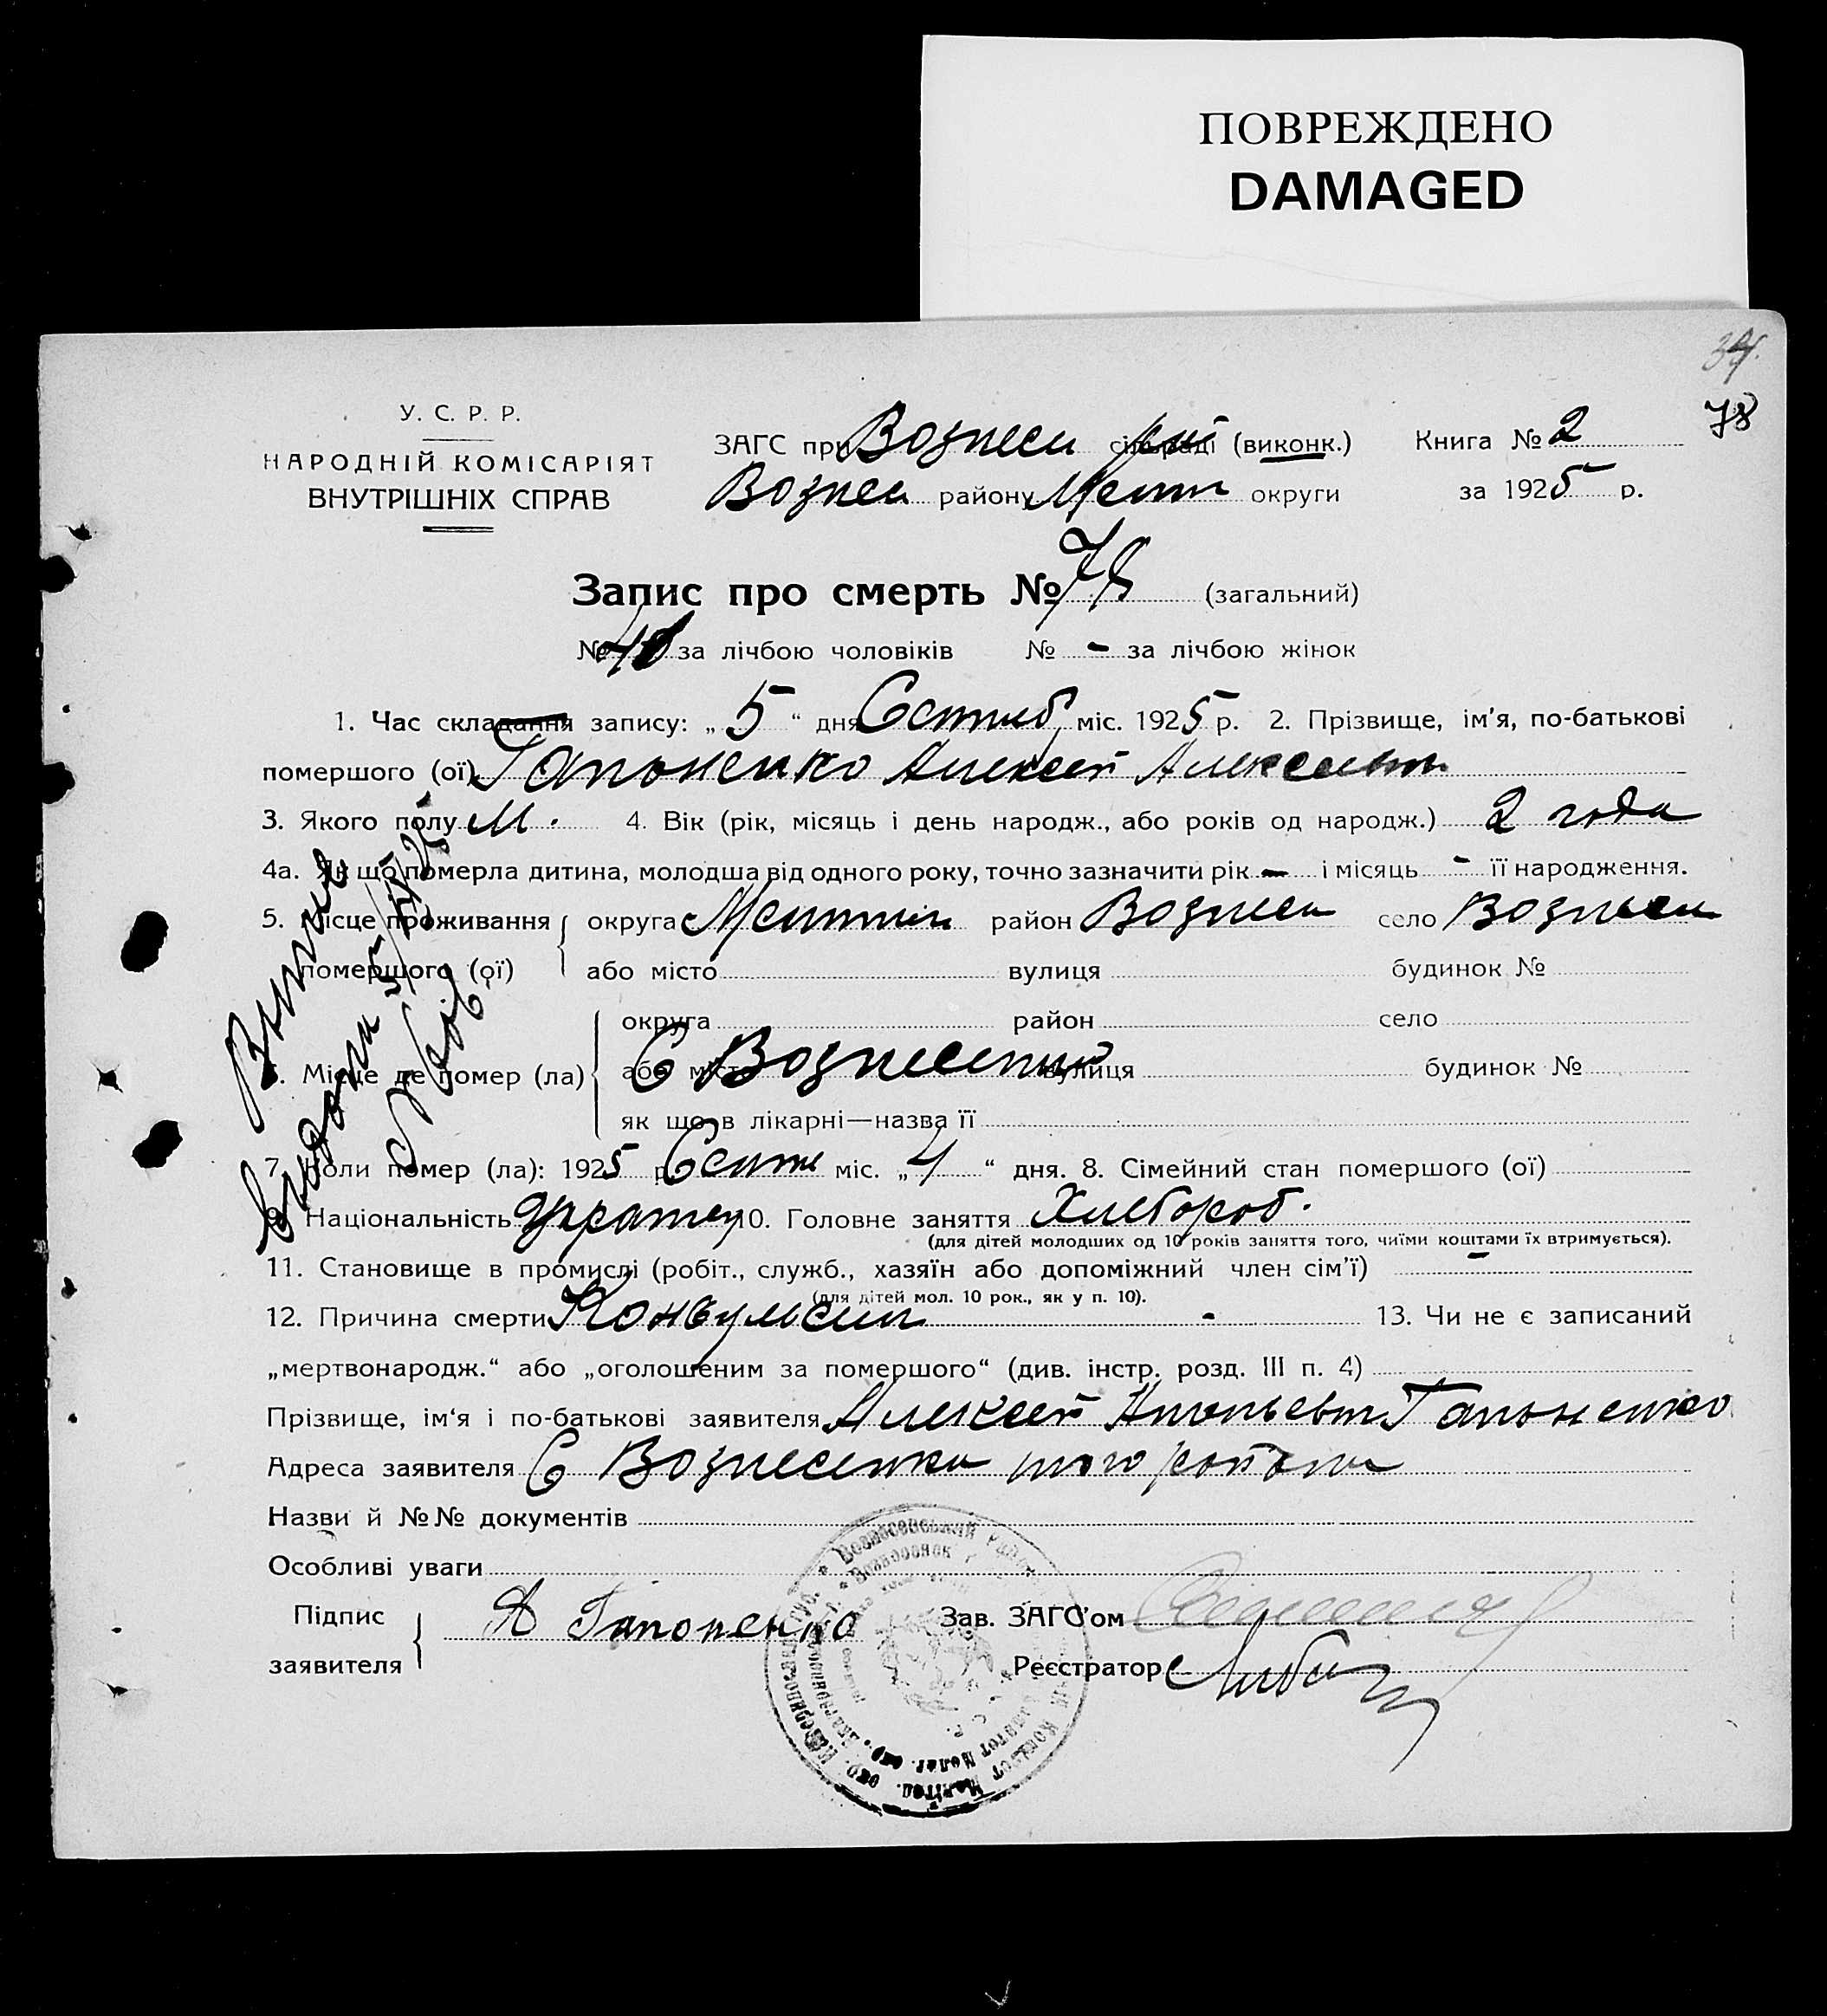 ПОВРЕЖДЕНО
DAMAGED
39.
78
У. С. Р. Р.
НАРОДНІЙ КОМІСАРІЯТ
ВНУТРІШНІХ СПРАВ
ЗАГС при Вознесен сільраді (виконк.) Книга № 2
Вознесен району Мелит округи за 1925 р.
Запис про смерть № 78 (загальний)
№ за лічбою чоловіків № - за лічбою жінок
1. Час складання запису: „5“ дня міс. 1925 р. 2. Прізвище, ім'я, по-батькові
помершого (ої) Гапоненко Алексей Алексеевич
3. Якого полу М. 4. Вік (рік, місяць і день народж., або років од народж.) 2 года
4а. Як що померла дитина, молодша від одного року, точно зазначити рік - і місяць - її народження.
5. Місце проживання округа район Вознесен село Вознесен
помершого (ої) або місто вулиця будинок №
округа район село
6. Місце де помер (ла) або місто С Вознесенка вулиця будинок №
як що в лікарні—назва її
7. Коли помер (ла): 1925 р. міс. „4“ дня. 8. Сімейний стан помершого (ої)
9. Національність 10. Головне заняття Хлебороб.
(для дітей молодших од 10 років заняття того, чиїми коштами їх втримується).
11. Становище в промислі (робіт., служб., хазяїн або допоміжний член сім'ї) -
(для дітей мол. 10 рок., як у п. 10).
12. Причина смерти Конвульсии - 13. Чи не є записаний
„мертвонародж.“ або „оголошеним за помершого“ (див. інстр. розд. III п. 4)
Прізвище, ім'я і по-батькові заявителя Алексей Гапоненко
Адреса заявителя С Вознесенка того района
Назви й №№ документів
Особливі уваги
Підпис
заявителя
А Гапоненко
Зав. ЗАГС'ом
Реєстратор